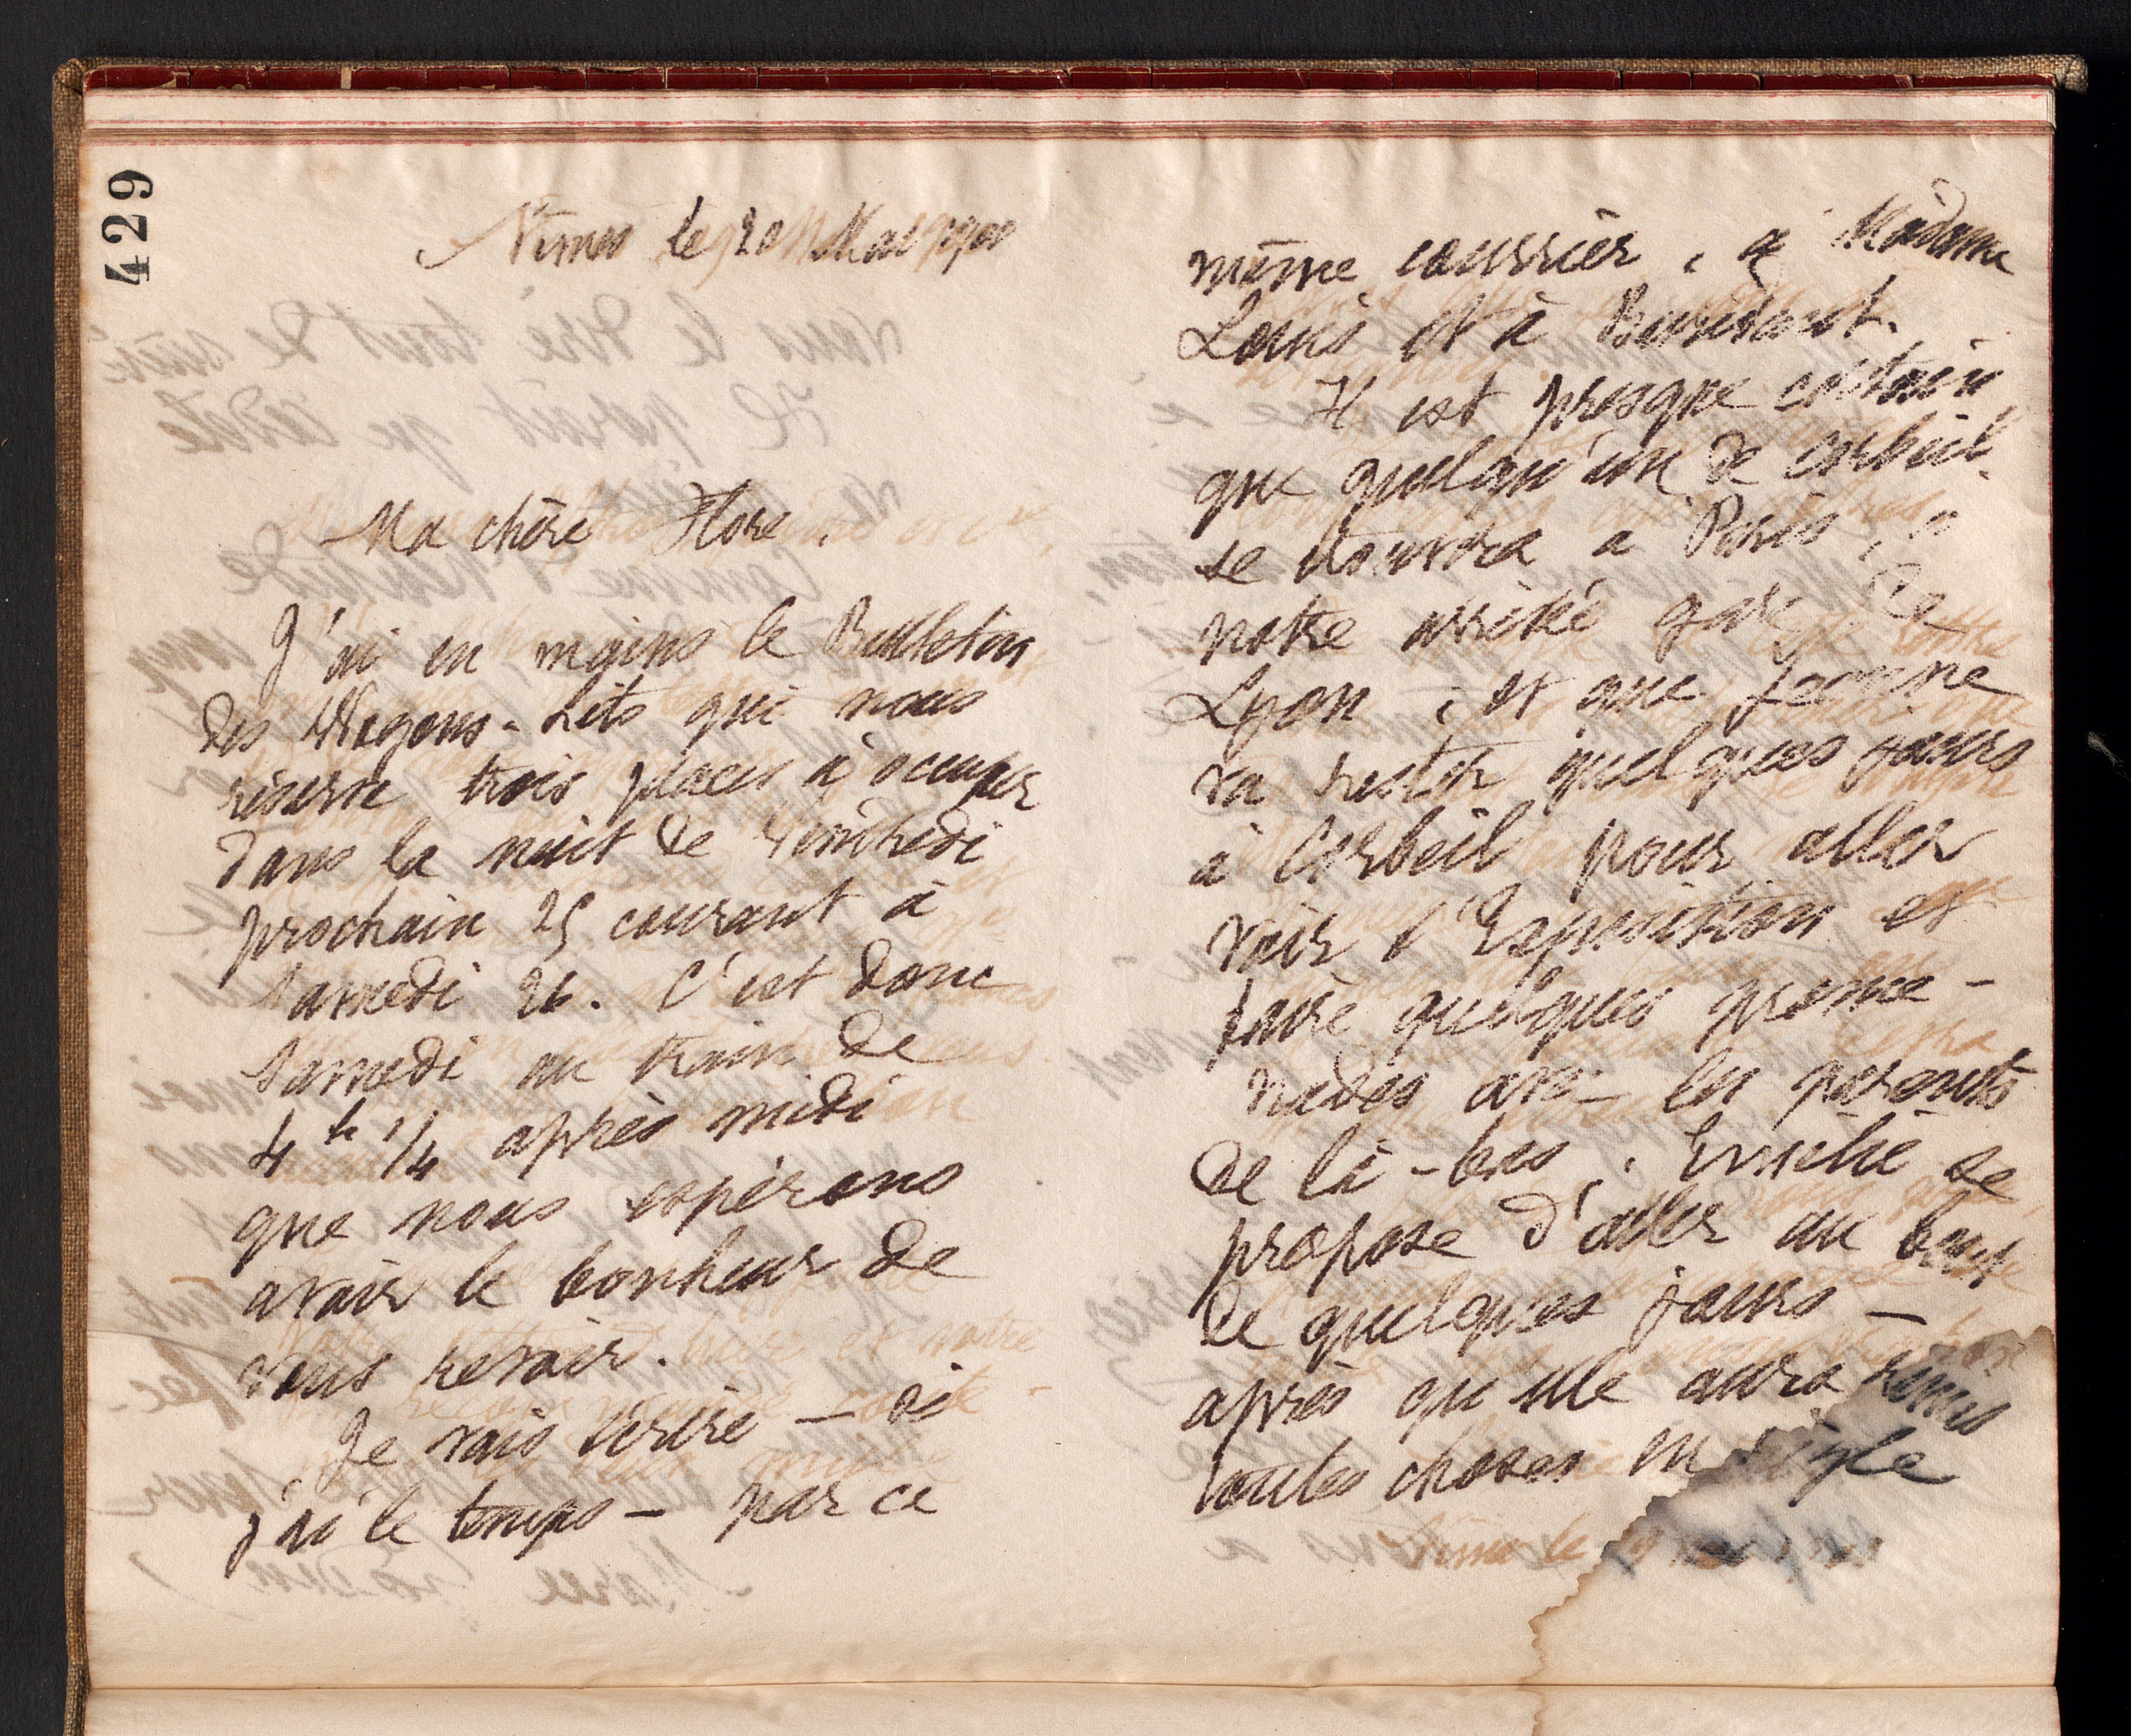 429
Nîmes le 20 Mai 1900
Ma chère Flore,
J'ai en mains le Bulletin
des Wagons-Lits qui nous
réserve trois places à occuper
dans la nuit de Vendredi
prochain 25 courant à
Samedi 26. C'est donc
Samedi au train de
4h 1/4 après midi
que nous espérons
avoir le bonheur de
vous revoir.
Je vais écrire – si
j'ai le temps – par ce
même courrier, à Madame
Louis et à Buridant.
Il est presque certain
que quelqu'un de Corbeil
se trouvera à Paris, à
notre arrivée gare de
Lyon, et que Jeanne
va rester quelques jours
à Corbeil pour aller
voir l'Exposition et
faire quelques prome-
nades avec les parents
de là-bas. Emelie se
propose d'aller au bout
de quelques jours –
après qu'elle aura remis
toutes choses en règle